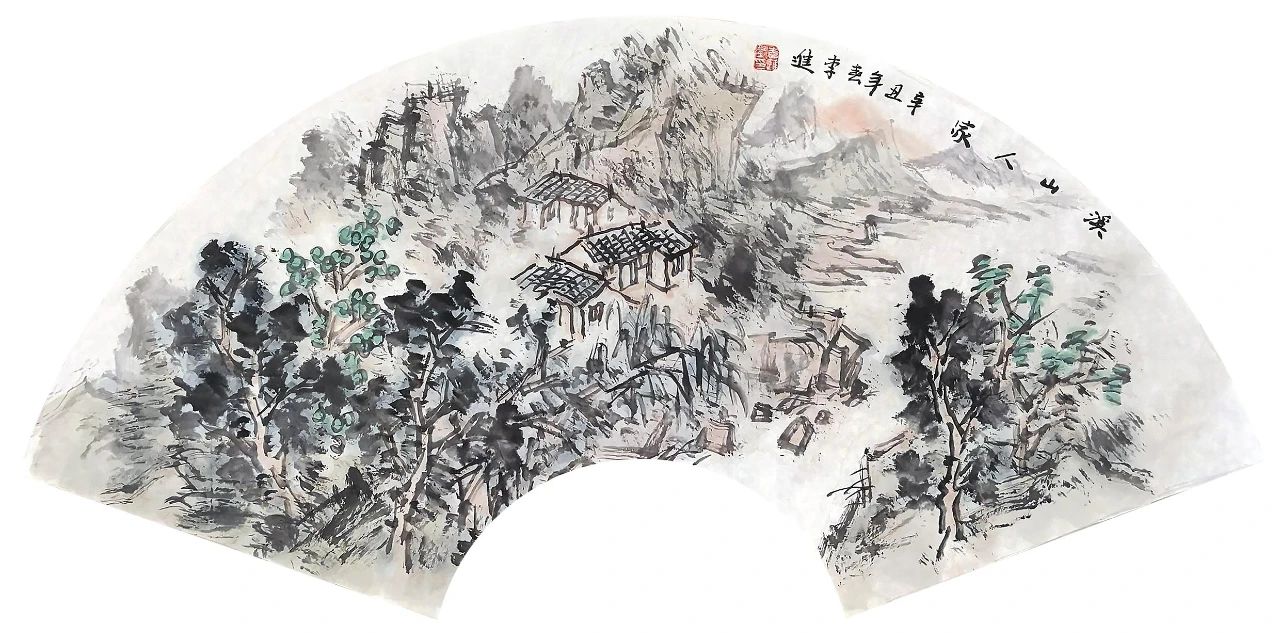 溪山人家
辛丑年春李進